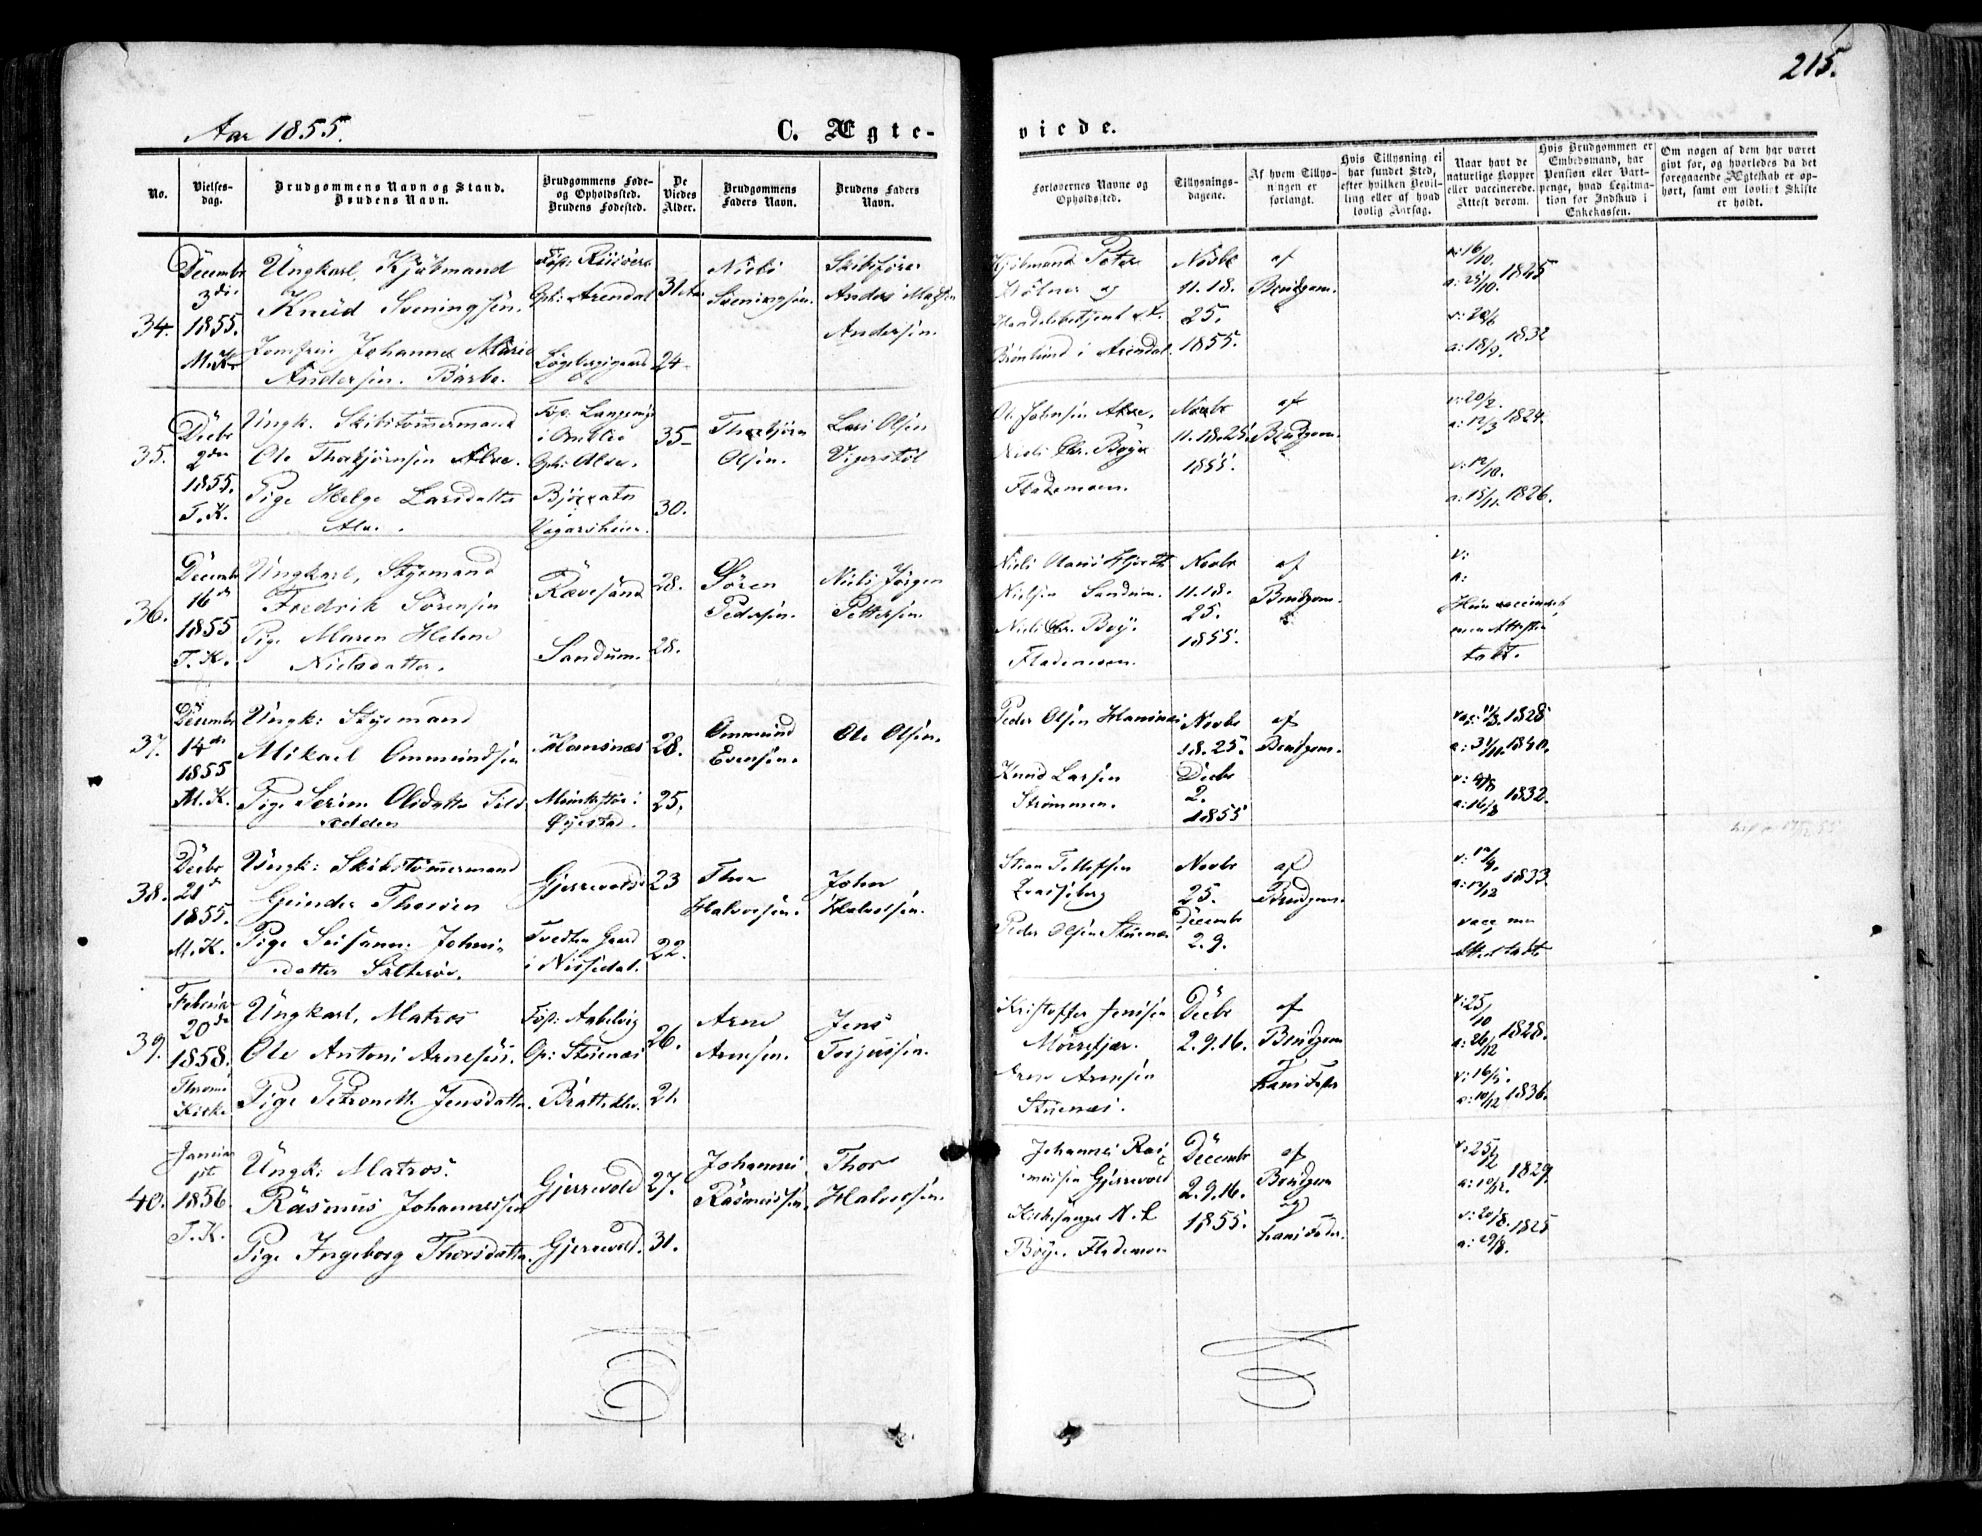 215.
Aar 1855.
C. Ægte-
viede.
No.
Vielses-
dag.
Brudgommens Navn og Stand.
Brudens Navn.
Brudgommens Føde-
og Opholdssted.
Brudens Fødested.
De
Viedes
Alder.
Brudgommens
Faders Navn.
Brudens Faders
Navn.
Forlovernes Navne og
Opholdssted.
Tillysnings-
dagene.
Af hvem Tillys-
ningen er
forlangt.
Hvis Tillysning ei
har fundet Sted,
efter hvilken Bevil-
ling eller af hvad
lovlig Aarsag.
Naar havt de
naturlige Kopper
eller vaccinerede.
Attest derom.
Hvis Brudgommen er
Embedsmand, har
Pension eller Vart-
penge, hvad Legitima-
tion for Indskud i
Enkekassen.
Om nogen af dem har været
givt før, og hvorledes da det
foregaaende Ægteskab er op-
hørt, samt om lovligt Skifte
er holdt.
34.
Decembr
3die
1855.
M.K.
Ungkarl, Kjøbmand
Knud Sveningsen.
Jomfru Johanne Marie
Andersen. Barbo.
Arendal
31
24
Niels
Sveningsen.
Anders
Andersen.
Kjøbmand Peter
i Arendal.
Novbr
11. 18.
25.
1855.
af
Brudgom.
v: 16/10.
a: 25/10. 1845
a: 18/9. 1832
35.
Decbr
9de
1855.
T.K.
Ungk. Skibstømmermand
Ole Thorbjørnsen Alve.
Pige Helge Larsdatter
Alve.
Oph: Alve.
Vegarsheien.
35
30.
Thorbjørn
Olsen.
Lars Olsen
Vigerstøl
Niels Chr. Boye
Flademoen.
Novbr
11. 18. 25.
1855.
af
Brudgom.
v: 20/2.
a: 12/3 1824.
v: 12/10.
a: 15/11. 1826.
36.
Decembr
16de
1855
T.K.
Ungkarl, Styrmand
Fredrik Sørensen
Pige Maren Helene
Nielsdatter.
Rævesand
Sandum.
28.
28.
Søren
Pedersen.
Niels Jørgen
Pettersen.
Nielsen Sandum.
Niels Chr. Boye.
Flademoen.
Novbr
11. 18.
25.
1855.
af
Brudgom.
v:
a:
men Attesten
tabt.
37.
Decembr
14de
1855
M.K.
Ungk: Styrmand
Mikael Ommundsen
Pige Serine Olsdatter Sild
vedden
Hansnæs
Øyestad.
28.
25.
Ommund
Evensen.
Ole Olsen.
Peder Olsen Hansnæs
Knud Larsen
Strømmen.
Novbr
18. 25.
Decbr
2.
1855
af
Brudgom.
1828
1840.
a: 16/8 1832.
38.
Decbr
21de
1855.
M.K.
Ungk: Skibstømmermand
Gunder Thorsen
Pige Susanne Johns-
datter Salterøe.
Gjerrevold.
Tvedten Gaard
i Nissedal.
23
22.
Thor
Halvorsen.
John
Halvorsen.
Peder Olsen Stuenæs
Novbr
25.
Decembr
2. 9.
af
Brudgom.
1833.
vacc men
Attest tabt
39.
Februar
20de
1858.
Thromø
Kirke
Ungkarl, Matros
Ole Antoni Arnesen.
Pige Petronelle Jensdatter.
Op: Stuenæs
Brattekleiv.
26.
21.
Arne
Arnesen.
Jens
Torjussen.
Kristoffer Jensen
Mørefjær.
Arne Arnesen
Stuenæs.
Decbr
2. 9. 16.
af
Brudgom
hans Fader
v: 25/10
a: 26/12 1828.
v: 16/5.
a: 10/12 1836.
40.
Januar
1ste
1856.
T.K.
Ungk: Matros.
Rasmus Johannessen
Pige Ingeborg Thorsdatter.
Gjerrevold
Gjerrevold.
27.
31.
Johannes
Rasmussen.
Thor
Halvorsen.
Johannes Ras-
mussen Gjerrevold
Kirkesanger N. C.
Boye. Flademoen
Decembr
2. 9. 16.
1855.
af
Brudgom
og
hans Fader.
v: 25/2
a: 10/12. 1829.
v: 20/8. 1825
a: 29/8.